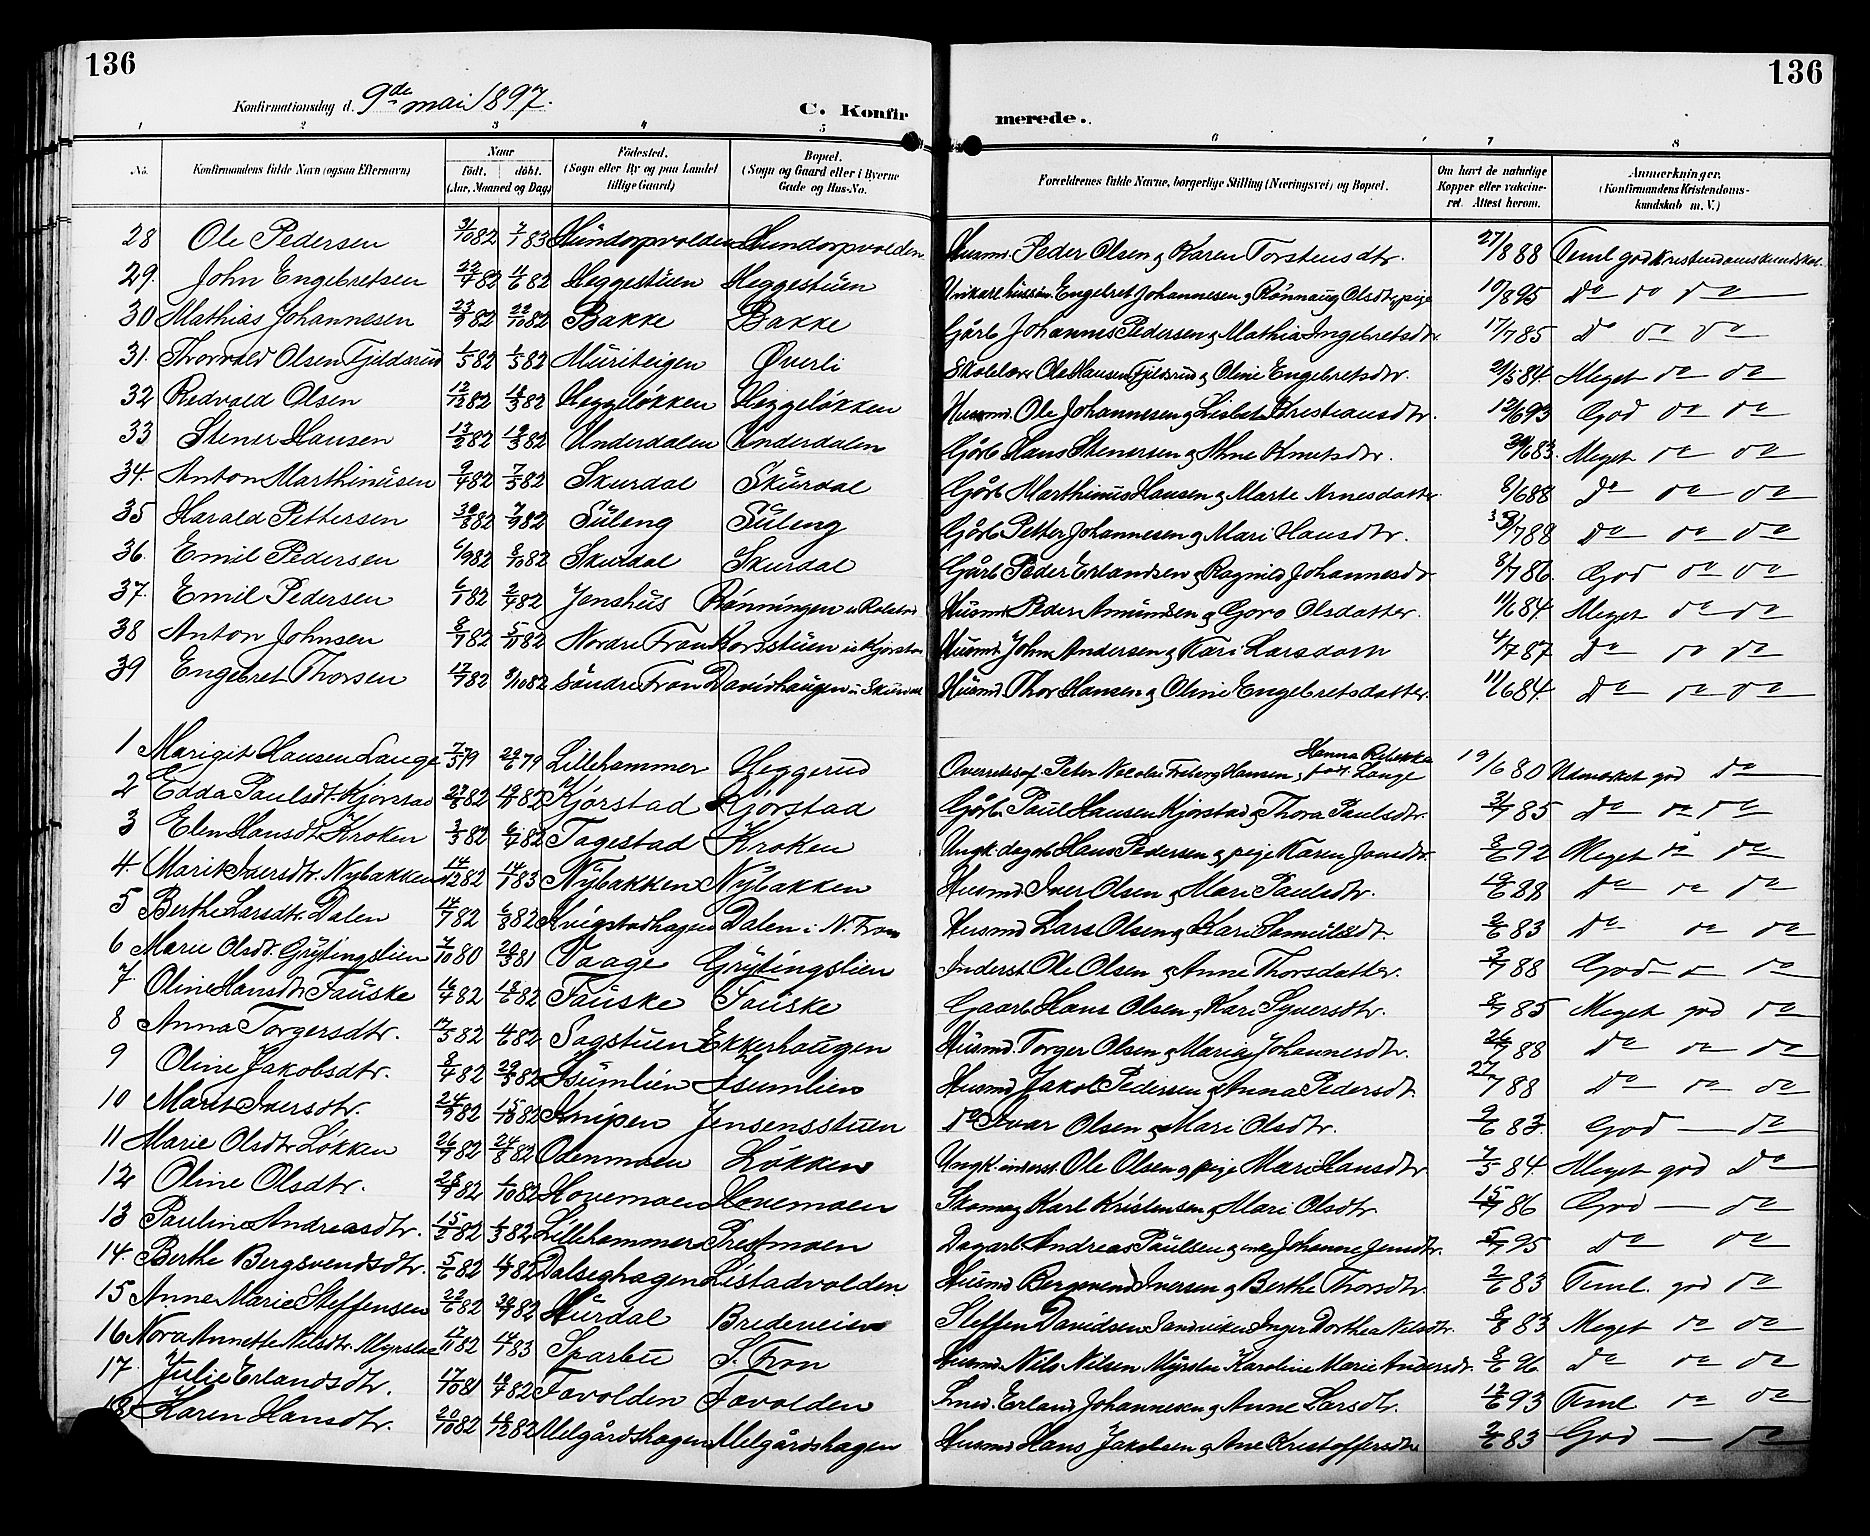 136
136
Konfirmationsdag d. 9de mai 1897.
C. Konfirmerede.
1 2 3 4 5 6 7 8
No. Konfirmandens fulde Navn (ogsaa Efternavn) Naar født, døbt. (Aar, Maaned og Dag) Fødested. (Sogn eller By og paa Landet tillige Gaard) Bopæl. (Sogn og Gaard eller i Byerne Gade og Hus-No. Forældrenes fulde Navne, borgerlige Stilling (Næringsvei) og Bopæl. Om havt de naturlige Kopper eller vakcineret. Attest herom. Anmærkninger. (Konfirmandens Kristendomskundskab m. V.)
28 Ole Pedersen 31/10 82 7/1 83 Hundorpvolden Hundorpvolden Husmd. Peder Olsen & Karen Torstensdtr. 27/8 88 Teml. god kristendomskundskab
29. John Engebretsen 22/4 82 4/6 82 Heggestuen Heggestuen Engebret Johannesen & Rønnaug Olsdtr, pige 10/8 95 Do do do
30 Mathias Johannesen 23/9 82 22/10 82 Bakke Bakke Gårb. Johannes Pedersen & Mathia Ingebretsdtr. 17/7 85 Do do do
31. Thorvald Olsen Fjildsrud 1/5 82 1/5 82 Muriteigen Øverli Skolelærer Ole Hansen Fjildsrud & Oline Engebretsdtr. 2/5 84. Meget do do
32 Redvald Olsen 12/12 82 18/3 82 Heggeløkken Heggeløkken Husmd. Ole Johannesen & Lisbet Kristiansdtr. 12/6 93 God do do
33 Stener Hansen 13/2 82 19/3 82 Underdalen Underdalen Gårb. Hans Stenersen & Ahne Knutsdtr. 30/6 83. Meget do do
34. Anton Marthinusen 9/4 82 7/5 82 Skurdal Skurdal Gårb. Marthinus Hansen & Marte Arnesdatter 8/6 88 Do do do
35 Harald Pettersen 30/8 82 7/9 82 Suleng Suleng Gårb. Petter Johannesen & Mari Hansdtr. /7 88 Do do do
36. Emil Pedersen 6/9 82 8/10 82 Skurdal Skurdal Gårb. Peder Erlandsen & Ragnild Johannesdtr 8/7 86. God do do
37. Emil Pedersen 6/1 82 2/4 82 Jenshus Rønningen u. Husmd. Peder Amundsen & Goro Olsdatter. 11/6 84. Meget do do
38 Anton Johnsen 8/7 82 5/11 82 Nordre Fron Korsstuen u. Kjorstad Husmd. John Andersen & Kari Larsdatn 4/7 87 Do do do
39 Engebret Thorsen 17/7 82 8/10 82 Søndre Fron Davidhaugen u. Skurdal Husmd. Thor Hansen & Oline Engebretsdatter. 11/6 84. Do do do
1 Marigit Hansen Lange 7/5 79 29/6 79 Lillehammer Heggerud Overretssf. Peter Nicolai Friberg Hansen, & Hanna Rebekka født Lange 19/6 80 Udmærket god do
2 Edda Paulsdt. Kjorstad 82 82 Kjørstad Kjørstad Gårb. Paul Hansen Kjorstad & Thora Paulsdtr. 3/7 85 Do do do
3 Elen Hansdtr. Kroken 3/3 82 6/7 82 Tagestad Kroken Ungk. dagarb. Hans Pedersen & pige Karen Jonsdtr. 8/6 92 Meget do do
4. Marit Iversdtr. Nybakken 14/12 82 14/1 83 Nybakken Nybakken Husmd. Iver Olsen & Mari Paulsdtr. 19/6 88 Do do do
5 Berthe Larsdtr. Dalen 14/7 82 6/8 82 Kvigstadhagen Dalen i N. Fron Husmd. Lars Olsen & Kari Semulsdt. 2/6 83 Do do do
6 Marie Olsdt. Grytingslien 7/10 80 20/3 81 Vaage Grytingslien Inderst. Ole Olsen & Anne Thorsdatter. 2/7 88 God — do
7 Oline Hansdtr Fauske 16/4 82 18/6 82 Fauske Fauske Gaarb. Hans Olsen & Kari Syversdtr. 8/7 85 Meget god do
8 Anna Torgersdtr. 17/5 82 4/6 82 Sagstuen Ekkerhaugen Husmd. Torger Olsen & Maria Johannesdtr. 26/7 88 Do do do
9 Oline Jakobsdtr. 8/4 82 29/5 82 Isumlien Isumlien Husmd Jakob Pedersen & Anna Pedersdt. 27/7 88 Do do do
10 Marit Iversdtr. 24/9 82 15/10 82 Knipen Jensensstuen Do Ivar Olsen & Mari Olsdtr. 2/6 83. God — do
11 Marie Olsdtr Løkken 26/7 82 24/8 82 Odenmoen Løkken Ungk. inderst. Ole Olsen & pige Mari Hansdtr 7/5 84. Meget god Do
12 Oline Olsdtr. 28/9 82 1/10 82 Hovemoen Hovemoen Skomag. Karl Kristensen & Mari Olsdtr 15/7 86 God — do
13 Pauline Andreasdtr. 15/2 82 /3 82 Lillehammer Prestmoen Dagarb. Andreas Paulsen & Johanne Jensdtr. 5/7 95 Do do
14. Berthe Bergsvendsdtr. 5/6 82 /7 82 Dalseghagen Listadvolden Husmd Bergsvend Iversen & Berthe Thorsdtr. 2/6 83 Teml. god do
15 Anne Marie Steffensen 22/6 82 30/7 82 Hurdal Bredeveien Steffen Davidsen Sandviken Inger Dorthea Nilsdtr. 8/8 83 Meget do do
16 Nora Annette Nilsdtr. 17/11 82 14/1 83 Sparbu S. Fron Husmd. Nils Nilsen Karoline Marie Andersdtr. 8/6 96 Do do do
17. Julie Erlandsdtr. 17/10 81 82 Tovolden Tovolden Smed. Erland Johannesen & Anne Larsdtr. 12/6 93 Teml. do do
18 Karen Hansdtr. 20/10 82 18/12 82 Melgårdshagen Melgårdshagen Husmd Hans Jakobsen & Ane Kristoffersdtr 2/6 83 God — do